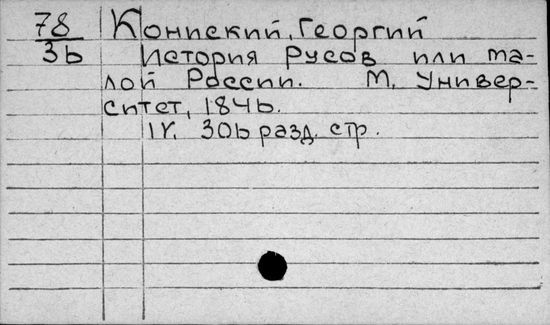 78 Конисский, Георгий
36 История Русов или Ма-
лой России. М. Универ-
ситет, 1846.
IV. 306 разд. стр.